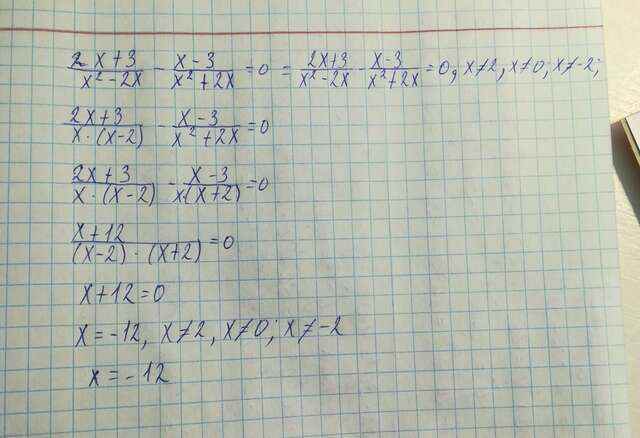 (2x+3)/(x²-2x) - (x-3)/(x²+2x) = 0 = (2x+3)/(x²-2x) - (x-3)/(x²+2x) = 0, x≠2, x≠0; x≠-2;
(2x+3)/(x·(x-2)) - (x-3)/(x²+2x) = 0
(2x+3)/(x·(x-2)) - (x-3)/(x(x+2)) = 0
(x+12)/((x-2)·(x+2)) = 0
x+12=0
x=-12, x≠2, x≠0; x≠-2
x=-12